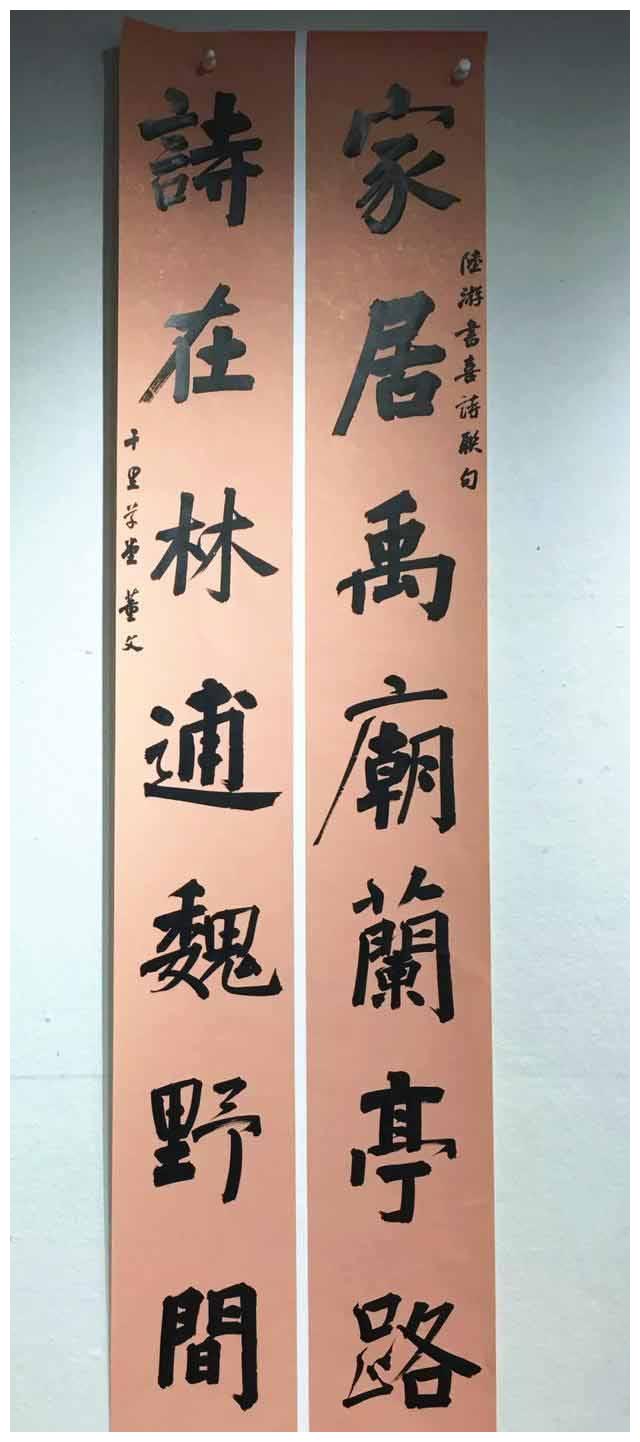 家居禹廟蘭亭路
陸游書喜詩联句
詩在林逋魏野間
千里草堂 董文